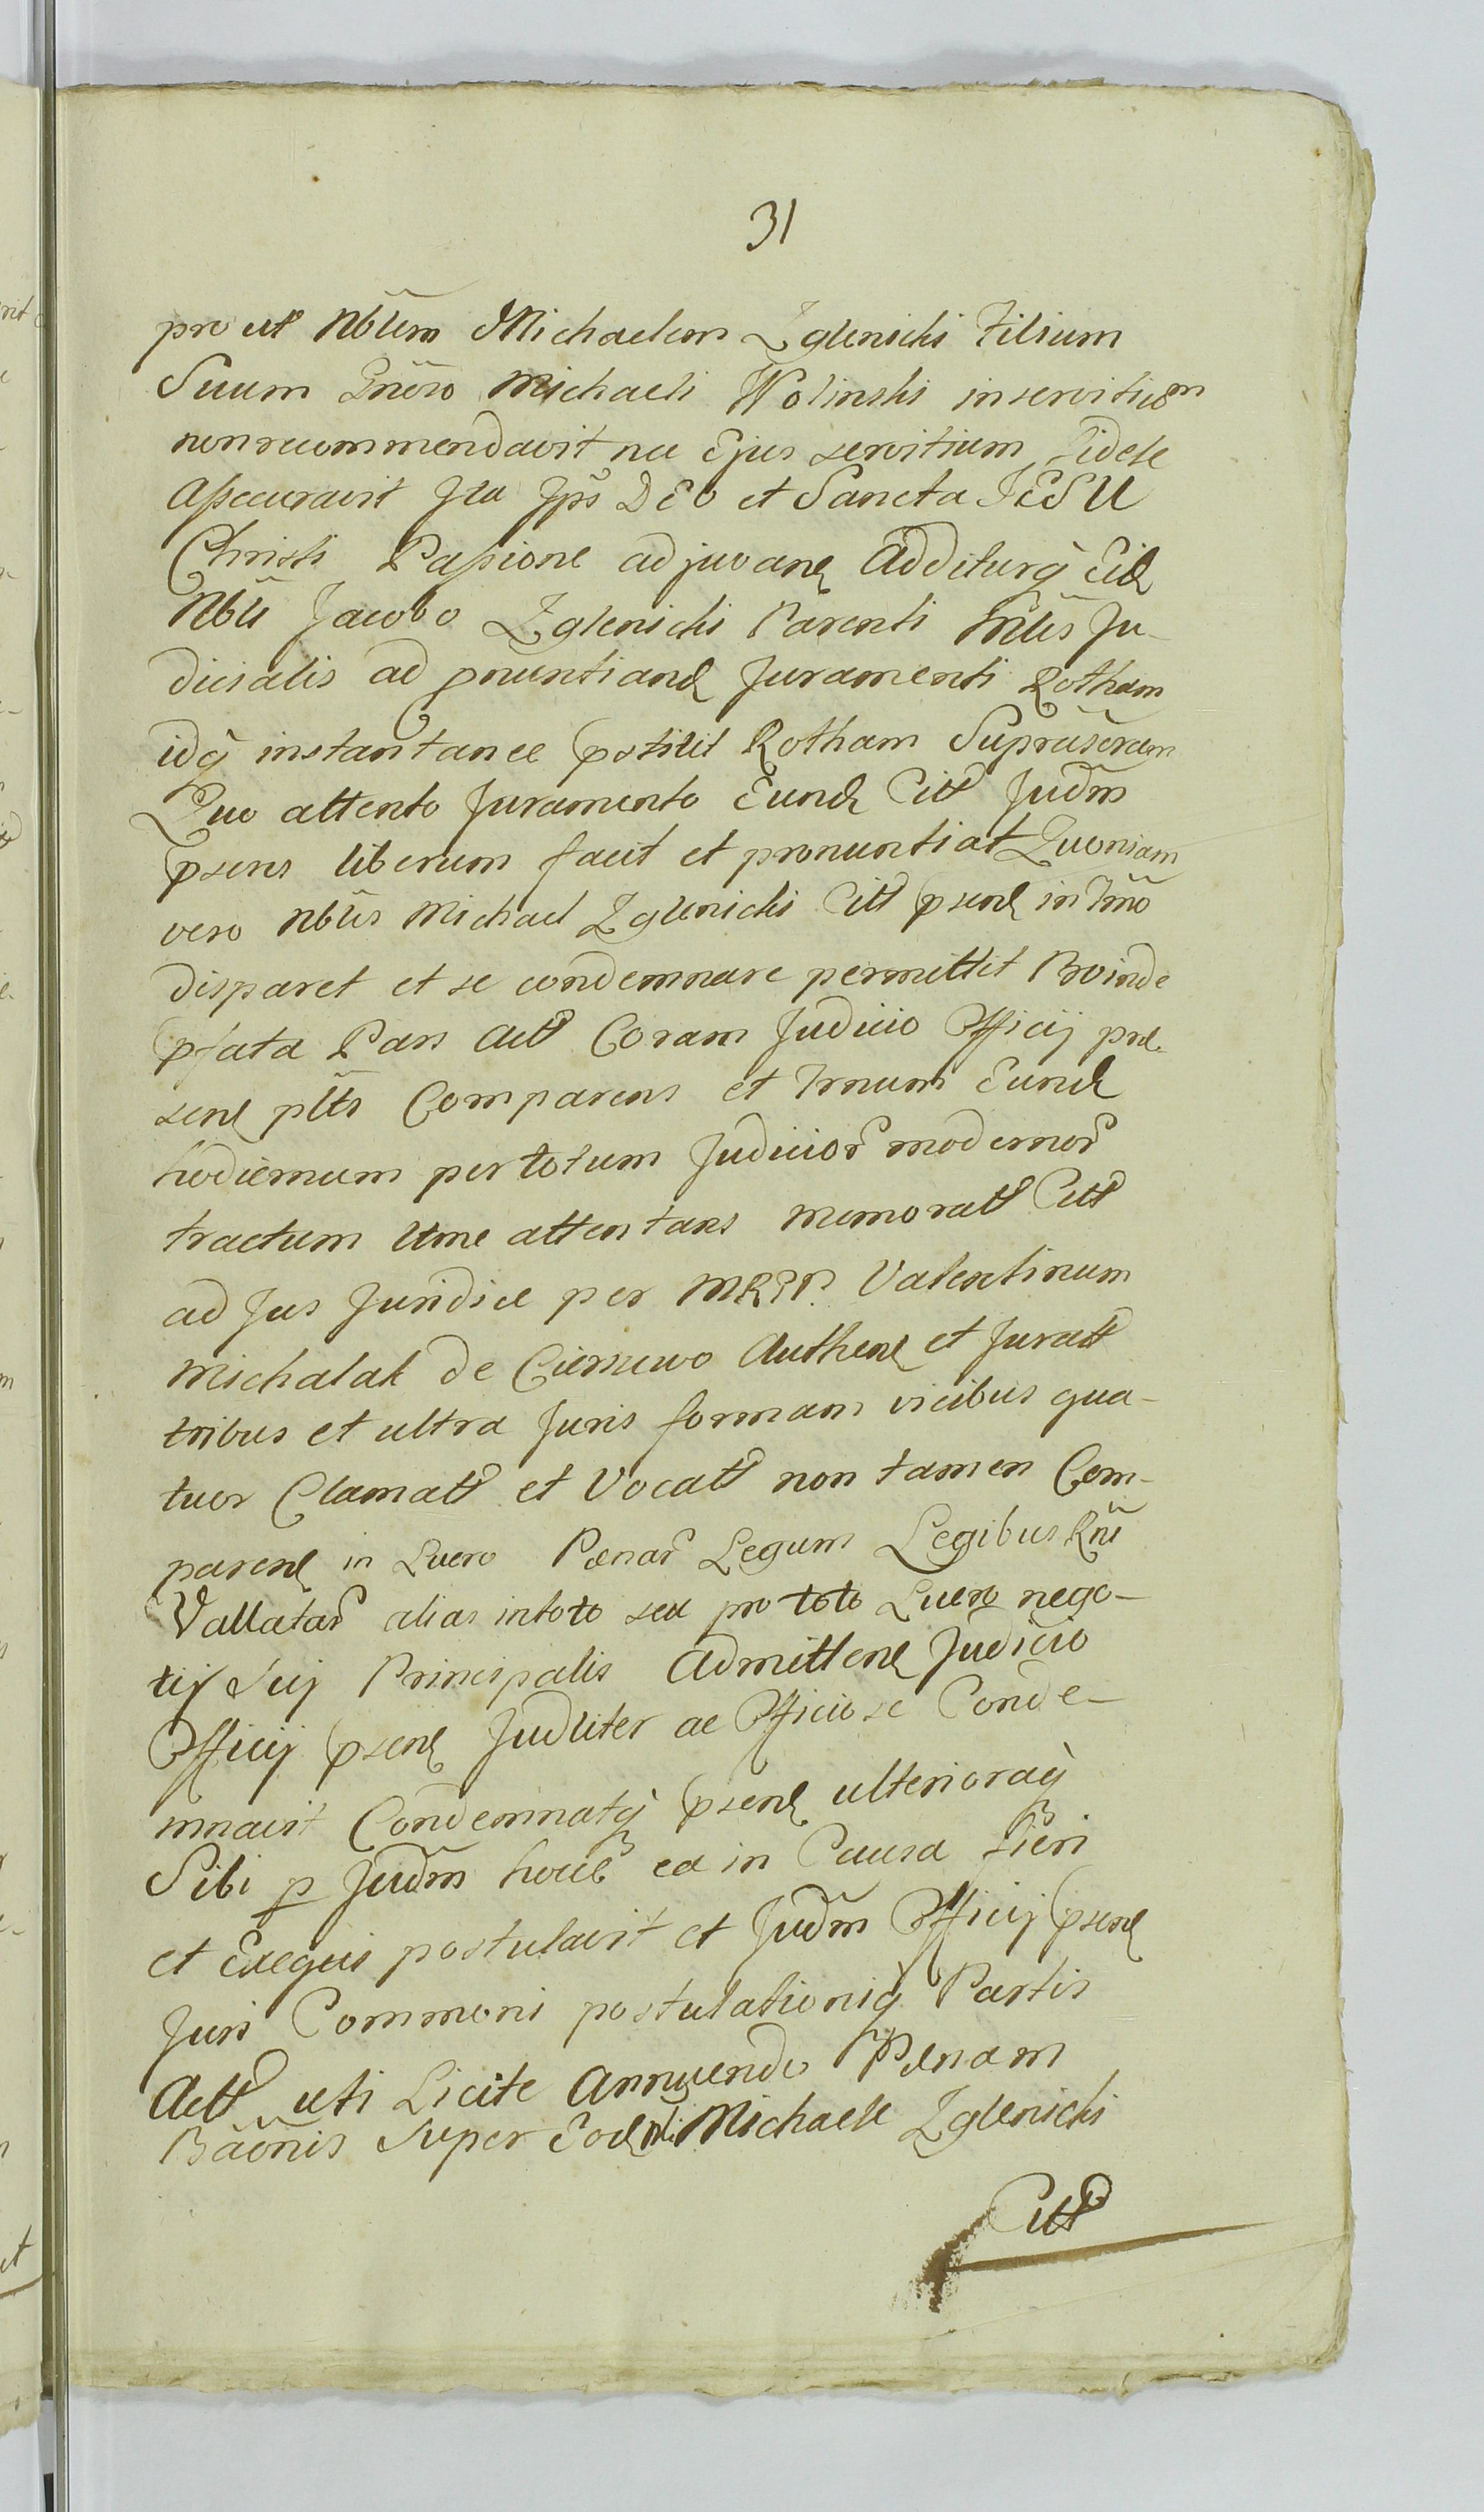 31
pro ut Nblem Michaelem Zglenicki Filium
Suum Gnero Michaeli Wolinski in servitium
non recommendavit nec Ejus servitium fidele
assecuravit Ita Ips DEo et Sancta JESU
Christi Passione adjuvane Additurq Eid
Nbli Jacobo Zglenicki Parenti Mtlis Ju-
dicialis ad pnuntiand Juramenti Rotham
idq instantanee pstitit Rotham Suprascram
Quo attento Juramento Eund Citt Judm
psens liberum facit et pronuntiat Quoniam
vero Nblis Michael Zglenicki Citt psene in Tmno
disparet et se condemnare permittit Proinde
pfata Pars Act Coram Judicio Officij prae
sene plts Comparens et Trnum Eund
hodiernum per totum Judicior modernor
tractum Ltme attentans memoratt Citt
ad Jus Juridice per MRPP. Valentinum
Michalak de Ciemiewo Authene et Juratt
tribus et ultra Juris formam vicibus qua-
tuor Clamatt et Vocatt non tamen Com-
parene in Lucro Poenar Legum Legibus Rni
Vallatar alias in toto seu pro toto Lucro nego-
tij Sui Principalis Admittene Judicio
Officij psene Judliter ac Officiose Conde-
mnavit Condemnatq psene ulterioraq
Sibi p Judm hocce ea in Causa fieri
et Exequi postulavit et Judm Officij psene
Juri Communi postulationiq Partis
Actt uti Licite Annuendo Poenam
Baonis super Eod Nli Michaele Zglenicki
Citt